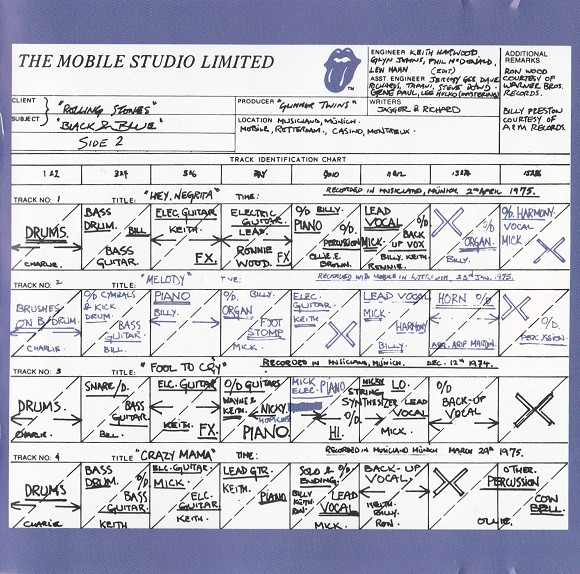 THE MOBILE STUDIO LIMITED
TM
ENGINEER KEITH HARWOOD,
GLYN JOHNS, PHIL McDONALD,
LEW HAHN (EDIT)
ASST. ENGINEER JEREMY GEE DAVE
RICHARDS, TAPANI, STEVE DOWD
GENE PAUL, LEE HULKO (MASTERING)
WRITERS
JAGGER & RICHARD
ADDITIONAL
REMARKS
RON WOOD
COURTESY OF
WARNER BROS.
RECORDS.
BILLY PRESTON
COURTESY OF
A&M RECORDS.
CLIENT "ROLLING STONES"
SUBJECT "BLACK & BLUE"
SIDE 2
PRODUCER "GLIMMER TWINS"
LOCATION MUSICLAND, MÜNICH.
MOBILE, ROTTERDAM, CASINO, MONTREUX.
TRACK IDENTIFICATION CHART
1&2 3&4 5&6 7&8 9&10 11&12 13&14 15&16
TRACK NO: 1 TITLE: "HEY, NEGRITA" TIME: RECORDED IN MUSICLAND, MÜNICH 2ND APRIL 1975.
DRUMS.
CHARLIE.
BASS
DRUM.
BILL
BASS
GUITAR.
ELEC. GUITAR
KEITH.
FX.
ELECTRIC
GUITAR.
LEAD.
RONNIE
WOOD. FX.
O/D BILLY.
PIANO
O/D
PERCUSSION
OLLIE E.
BROWN.
LEAD
VOCAL
MICK.
O/D
BACK
UP VOX
BILLY. KEITH.
RONNIE.
O/D
ORGAN.
BILLY.
O/D. HARMONY
VOCAL
MICK
TRACK NO: 2 TITLE: "MELODY" TIME: RECORDED WITH MOBILE IN 23RD JAN. 1975.
BRUSHES
ON B/DRUM.
CHARLIE.
O/D CYMBALS
& KICK
DRUM.
BASS
GUITAR.
BILL.
PIANO
BILLY.
O/D. BILLY.
ORGAN
FOOT
STOMP
MICK.
ELEC.
GUITAR.
KEITH.
LEAD VOCAL
MICK.
HARMONY
BILLY
HORN O/D
ARR. ARIF MARDIN.
O/D.
PERCUSSION
TRACK NO: 3 TITLE: "FOOL TO CRY" RECORDED IN MUSICLAND, MÜNICH. DEC. 12TH 1974.
DRUMS.
CHARLIE.
SNARE/D.
BASS
GUITAR.
BILL.
ELC. GUITAR
KEITH.
FX.
O/D GUITARS
WAYNE &
KEITH.
NICKY
HOPKINS
PIANO.
MICK
ELEC. PIANO
O/D.
HI.
NICKY LO.
STRING
SYNTHESIZER LEAD
VOCAL
MICK.
O/D
BACK-UP
VOCAL
TRACK NO: 4 TITLE: "CRAZY MAMA" TIME: RECORDED IN MUSICLAND MÜNICH MARCH 29TH 1975.
DRUMS
CHARLIE
BASS
DRUM. O/D
BASS
GUITAR.
KEITH
ELC. GUITAR
MICK.
ELC.
GUITAR
KEITH.
LEAD GTR.
KEITH.
PIANO
SOLO & O/D
ENDING.
BILLY
KEITH.
RON.
LEAD
VOCAL
MICK.
BACK-UP
VOCAL.
KEITH.
BILLY.
RON.
OLLIE.
OTHER.
PERCUSSION
COW
BELL.